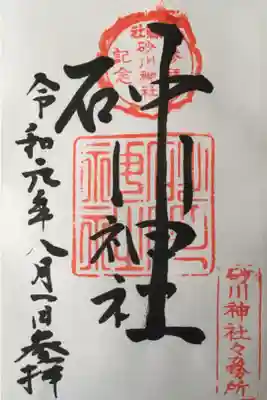 砂川神社
参拝
記念
砂川神社
令和元年八月一日参拝
砂川神社
砂川神社々務所